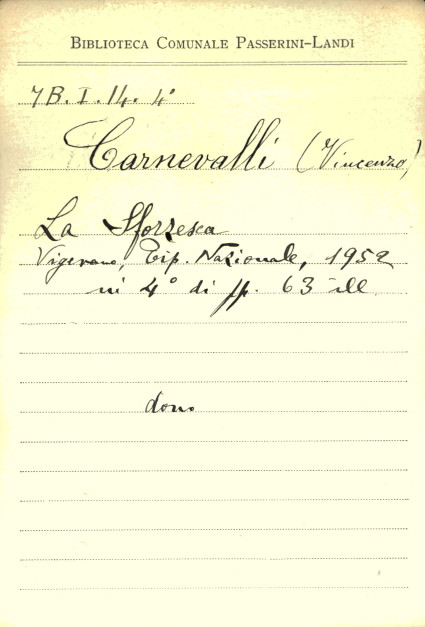 BIBLIOTECA COMUNALE PASSERINI-LANDI
7B. I. 14. 4°
Carnevalli (Vincenzo)
La Sforzesca
Vigevano, Tip. Nazionale, 1952
in 4° di pp. 63 ill
dono